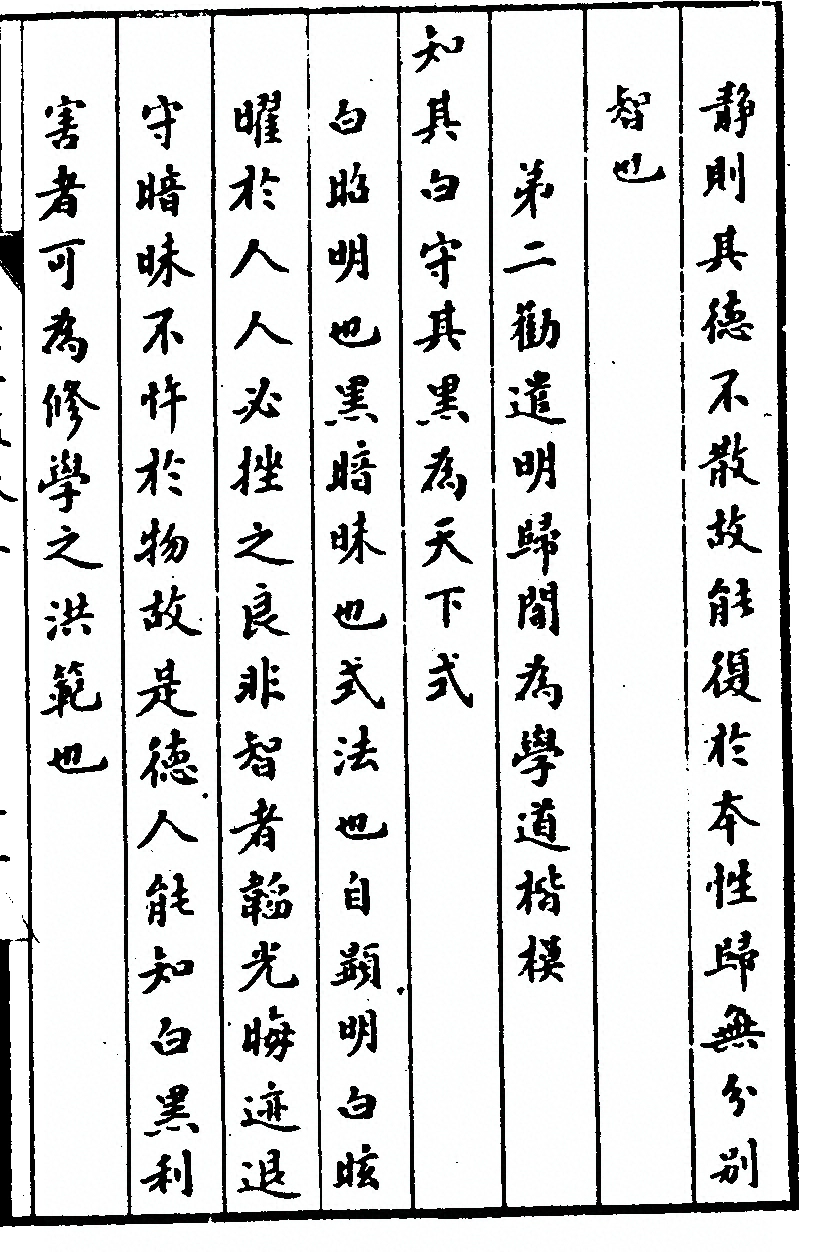 静則其德不散故能復於本性歸無分別
智也
第二勸遣明歸闇為學道楷模
知其白守其黑為天下式
白昭明也黑暗昧也式法也自顯明白眩
曜於人人必挫之良非智者韜光晦迹退
守暗昧不忤於物故是德人能知白黑利
害者可為修學之洪範也